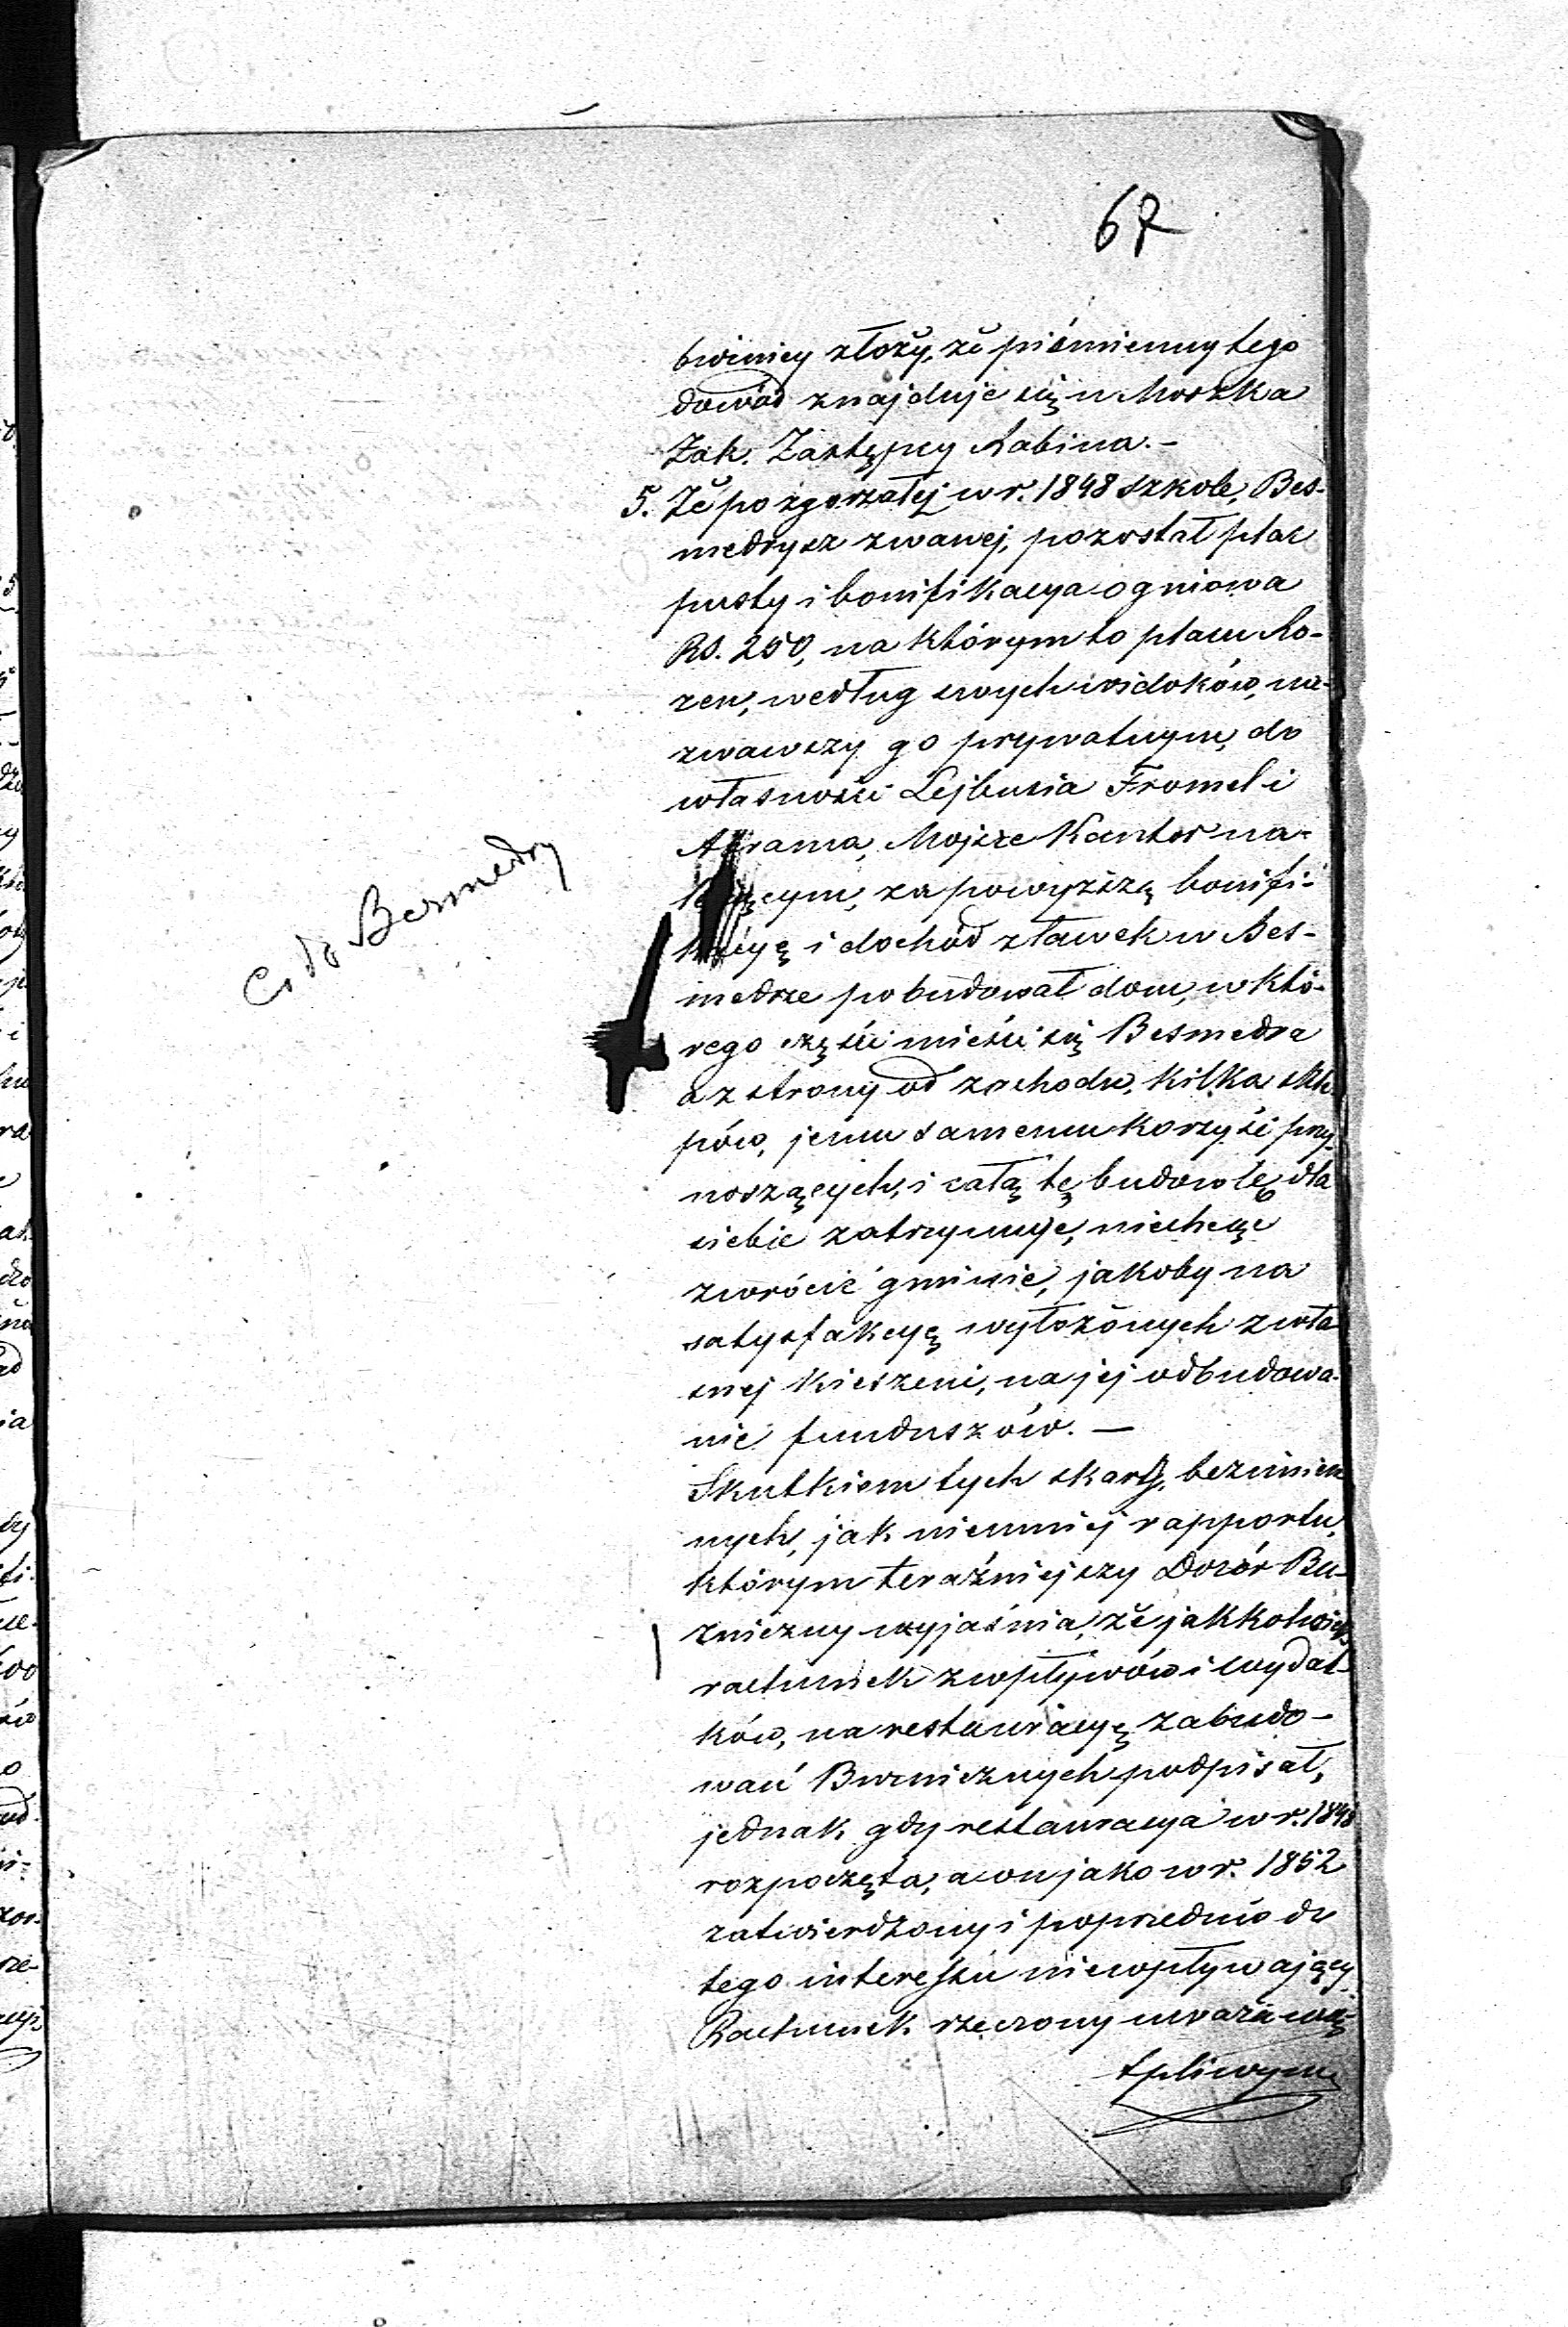 67
bwinicy złoży, że piśmienny tego
dowód znajduje się u Moszka
Żak. Zastępcy Rabina. -
5. Że po zgorzałej w r. 1848 szkole, Bes-
medrysz zwanej, pozostał plac
pusty i bonifikacya ogniowa
Rs. 250, na którym to placu Ro-
zen, według swych widoków, na-
zwawszy go prywatnym, do
własności Lejbusia Fromel i
Abrama, Mojsze Kantor na-
leżącym, za powyższą bonifi-
kacyę i dochód z ławek w Bes-
medrze pobudował dom, w któ-
rego części mieści się Besmedra
a z strony od zachodu, kilka skle
pów, jemu samemu korzyści przy-
noszących, i całą tę budowlę dla
siebie zatrzymuje, niechcąc
zwrócić gminie, jakoby na
satysfakcyę wyłożonych z wła
snej kieszeni, na jej odbudowa-
nie funduszów. —
Skutkiem tych skarg, bezimien
nych, jak niemniej rapportu,
którym teraźniejszy Dozór Bu-
żniczny wyjaśnia, że jakkolwiek
rachunek z wpływów i wydat-
ków, na restauracyę zabudo-
wań Bożniczych podpisał,
jednak gdy restauracya w r. 1848
rozpoczęta, a on jako w r. 1852
zatwierdzony i poprzednio do
tego interessu niewpływający,
Rachunek rzeczony uważa wą-
tpliwym
Co do Besmedry